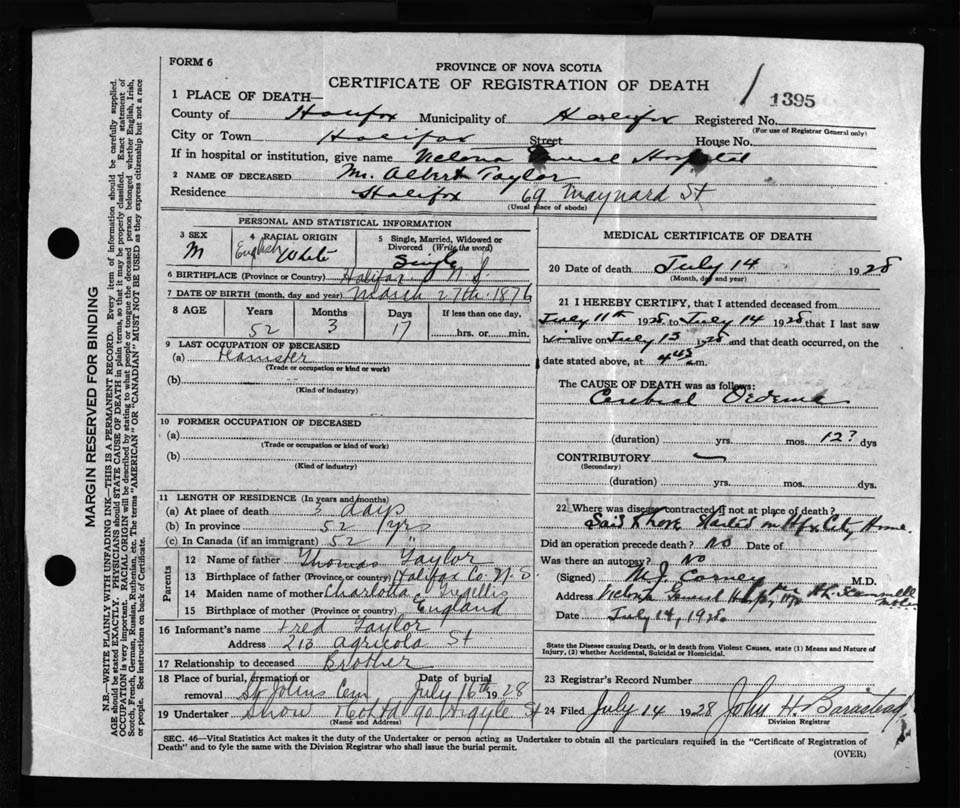 FORM 6
PROVINCE OF NOVA SCOTIA
CERTIFICATE OF REGISTRATION OF DEATH
1395
1 PLACE OF DEATH—
County of Halifax Municipality of Halifax Registered No.
(For use of Registrar General only)
City or Town Halifax Street House No.
If in hospital or institution, give name Victoria General Hospital
2 NAME OF DECEASED. Mr. Albert Taylor
Residence Halifax 69 Maynard St
(Usual place of abode)
PERSONAL AND STATISTICAL INFORMATION
3 SEX M
4 RACIAL ORIGIN English White
5 Single, Married, Widowed or Divorced (Write the word) Single
6 BIRTHPLACE (Province or Country) Halifax N S.
7 DATE OF BIRTH (month, day and year) March 27th 1876
8 AGE Years Months Days If less than one day,
52 3 17 hrs. or min.
9 LAST OCCUPATION OF DECEASED
(a) Teamster
(Trade or occupation or kind or work)
(b)
(Kind of industry)
10 FORMER OCCUPATION OF DECEASED
(a)
(Trade or occupation or kind of work)
(b)
(Kind of industry)
11 LENGTH OF RESIDENCE (In years and months)
(a) At place of death 3 days
(b) In province 52 yrs
(c) In Canada (if an immigrant) 52 "
Parents
12 Name of father Thomas Taylor
13 Birthplace of father (Province or country) Halifax Co. N. S.
14 Maiden name of mother Charlotta
15 Birthplace of mother (Province or country) England
16 Informant's name Fred Taylor
Address 213 Agricola St
17 Relationship to deceased Brother
18 Place of burial, cremation or removal St Johns Cem Date of burial July 16th 1928
19 Undertaker Snow & Co Ltd 90 Argyle St
(Name and address)
MEDICAL CERTIFICATE OF DEATH
20 Date of death July 14 1928
(Month, day and year)
21 I HEREBY CERTIFY, that I attended deceased from
July 11th 1928 to July 14 1928 that I last saw
him alive on July 13 1928 and that death occurred, on the
date stated above, at 4 45 a.m.
The CAUSE OF DEATH was as follows:
Cerebral Oedema
(duration) yrs. mos. 12? dys
CONTRIBUTORY
(Secondary)
(duration) yrs. mos. dys.
22 Where was disease contracted if not at place of death?
Said to have started in Hfx City Home
Did an operation precede death? No Date of
Was there an autopsy? No
(Signed) M.D.
Address Victoria General Hosp
Date July 14, 1928
State the Disease causing Death, or in death from Violent Causes, state (1) Means and Nature of Injury, (2) whether Accidental, Suicidal or Homicidal.
23 Registrar's Record Number
24 Filed July 14 1928 John H. Barnstead
SEC. 46—Vital Statistics Act makes it the duty of the Undertaker or person acting as Undertaker to obtain all the particulars required in the "Certificate of Registration of
Death" and to fyle the same with the Division Registrar who shall issue the burial permit.
(OVER)
MARGIN RESERVED FOR BINDING
N.B.—WRITE PLAINLY WITH UNFADING INK—THIS IS A PERMANENT RECORD. Every item of information should be carefully supplied.
AGE should be stated EXACTLY. PHYSICIANS should STATE CAUSE OF DEATH in plain terms, so that it may be properly classified. Exact statement of
OCCUPATION is very important. RACIAL ORIGIN will be described by stating to what people or tongue the deceased person belonged whether English, Irish,
Scotch, French, German, Russian, Ruthenian, etc. The terms "AMERICAN" or "CANADIAN" MUST NOT BE USED as they express citizenship but not a race
or people. See instructions on back of Certificate.